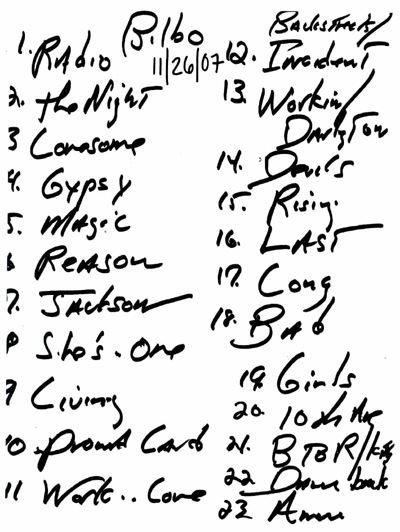 Bilbo
11/26/07
1. Radio
2. the Night
3 Lonesome
4. Gypsy
5. Magic
6 Reason
7. Jackson
8 She's. One
9 Living
10 Promd Land
11 Work.. Come
Backstreets/
12. Incident
13. Workin/
Darlgton
14. Devils
15. Rising
16. LAST
17. Long
18. BAD
19. Girls
20. 10th Ave
21. BTBR/
22 Dance
23 Amer